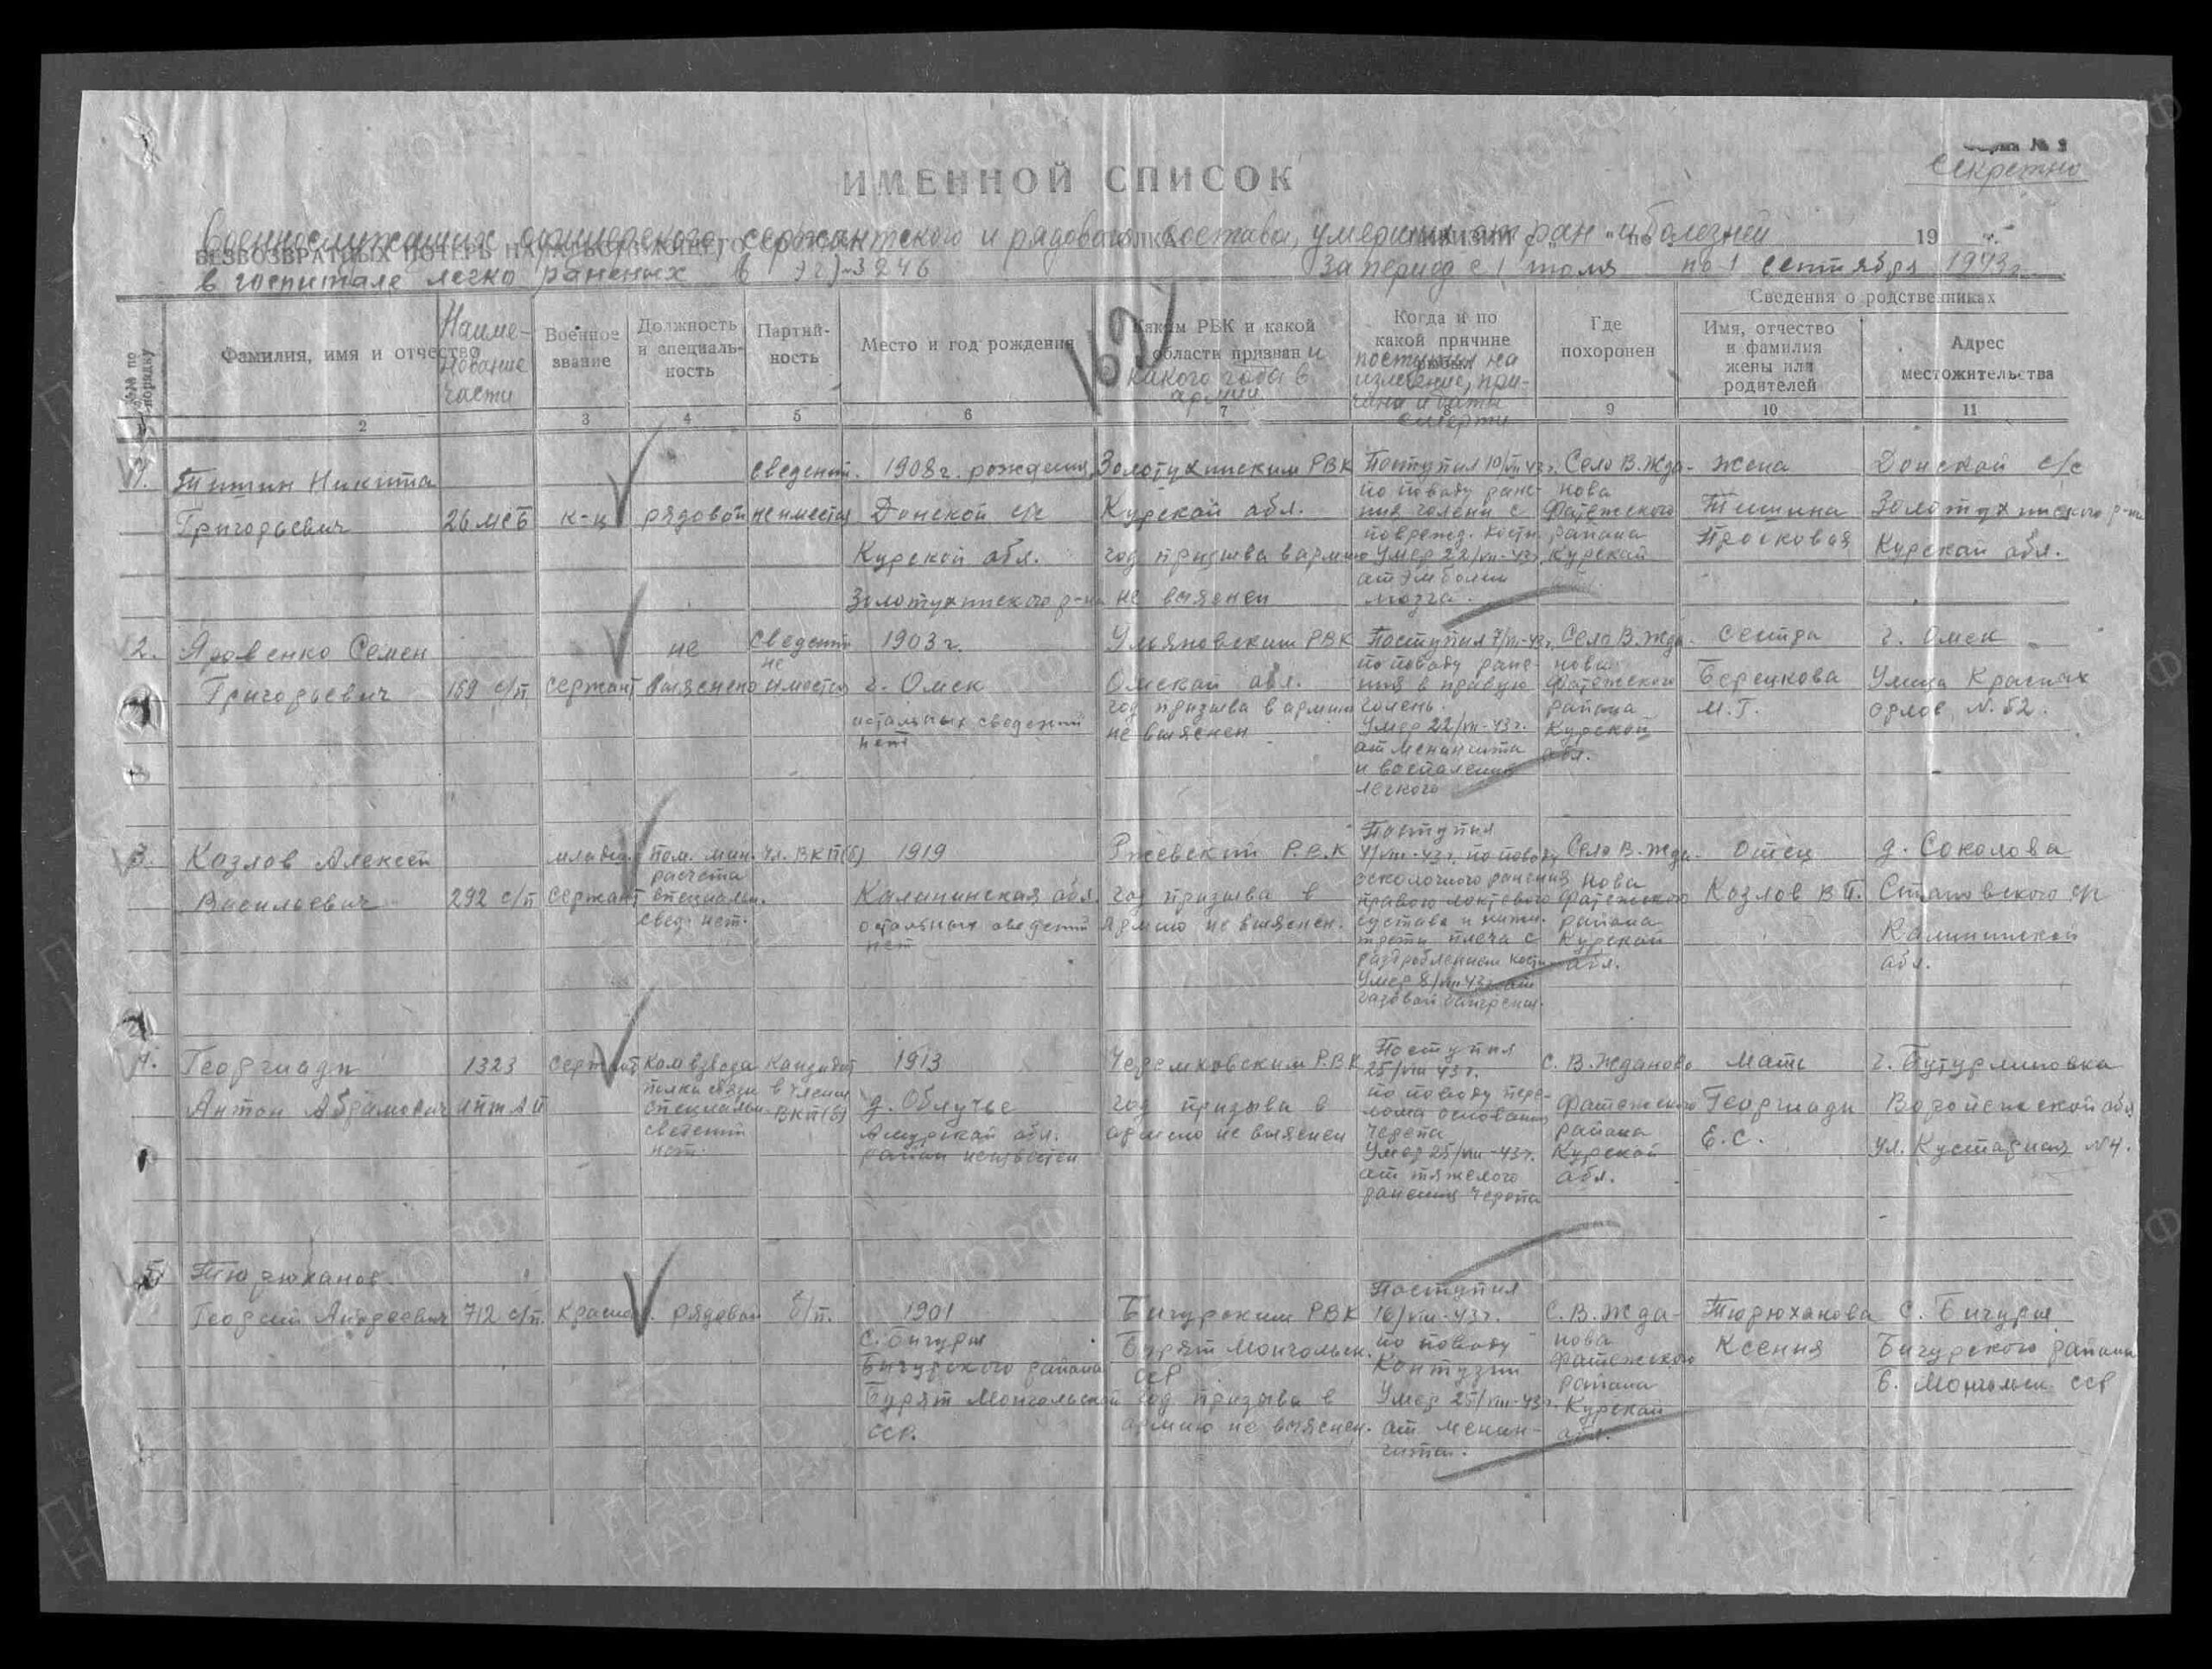 Форма № 2
Секретно
ИМЕННОЙ СПИСОК
Военнослужащих офицерского, сержантского и рядового состава, умерших от ран и болезней
БЕЗВОЗВРАТНЫХ ПОТЕРЬ НАЧАЛЬСТВУЮЩЕГО 19 г.
в госпитале легко раненых 3246 за период с 1 июля по 1 сентября 1943 г.
№№ по порядку
Фамилия, имя и отчество
Наименование части
Военное звание
Должность и специальность
Партийность
Место и год рождения
Каким РВК и какой области призван и какого года в армии
Когда и по какой причине выбыл
поступил на излечение, причина и дата смерти
Где похоронен
Сведения о родственниках
Имя, отчество и фамилия жены или родителей
Адрес местожительства
2 3 4 5 6 7 8 9 10 11
1. Тишин Никита
Григорьевич
26 мсб
к-ц
рядовой
сведений
не имеется
1908 г. рождения
Донской с/с
Курской обл.
Золотухинского р-на
Золотухинским РВК
Курской обл.
год призыва в армию
не выяснен
Поступил 10/VII-43 г.
по поводу ране-
ния голени с
поврежд. кости
Умер 22/VII-43 г.
от эмболии
мозга.
Село В. Жда-
нова
Фатежского
района
Курской
обл.
Жена
Тишина
Просковья
Донской с/с
Золотухинского р-на
Курской обл.
2. Яровенко Семен
Григорьевич
159 с/п
сержант
не
выяснено
сведений
не
имеется
1903 г.
г. Омск
остальных сведений
нет
Ульяновским РВК
Омской обл.
год призыва в армию
не выяснен
Поступил 7/VII-43 г.
по поводу ране-
ния в правую
голень.
Умер 22/VII-43 г.
от менингита
и воспаления
легкого
Село В. Жда-
нова
Фатежского
района
Курской
обл.
сестра
М.Г.
г. Омск
Улица Красных
орлов N. 52.
3. Козлов Алексей
Васильевич
292 с/п
младш.
сержант
Пом. мин.
расчета
специальн.
свед. нет.
Чл. ВКП(б)
1919
Калининская обл.
остальных сведений
нет
Ржевский Р.В.К
год призыва в
армию не выяснен.
Поступил
4/VIII-43 г. по поводу
осколочного ранения
правого локтевого
сустава и нижн.
трети плеча с
раздроблением кости
Умер 8/VIII-43 г. от
газовой гангрены.
Село В. Жда-
нова
Фатежского
района
Курской
обл.
Отец
Козлов В.П.
д. Соколова
Калининской
обл.
4. Георгиади
Антон Абрамович
1323
иптап
сержант
Ком взвода
полка связи
специальн.
сведений
нет.
Кандидат
в члены
ВКП(б)
1913
д. Облучье
Амурской обл.
район неизвестен
Черемховским Р.В.К
год призыва в
армию не выяснен
Поступил
25/VIII 43 г.
по поводу пере-
лома основания
черепа
Умер 25/VIII-43 г.
от тяжелого
ранения черепа
с. В. Жданово
Фатежского
района
Курской
обл.
Мать
Георгиади
Е.С.
г. Бутурлиновка
Воронежской обл.
ул. Кустарная N 4.
5. Тюрюханов
Георгий Андреевич
712 с/п.
рядовой
б/п.
1901
С. Бичуры
Бичурского района
Бурят Монгольской
ССР.
Бичурским РВК
Бурят Монгольск.
ССР
год призыва в
армию не выяснен.
Поступил
16/VIII-43 г.
по поводу
Контузии
Умер 25/VIII-43 г.
от менин-
гита.
С. В. Жда-
нова
Фатежского
района
Курской
обл.
Тюрюханова
Ксения
с. Бичуры
Бичурского района
Б. Монгольск. ССР
ПАМЯТЬ НАРОДА
ЦАМО.РФ